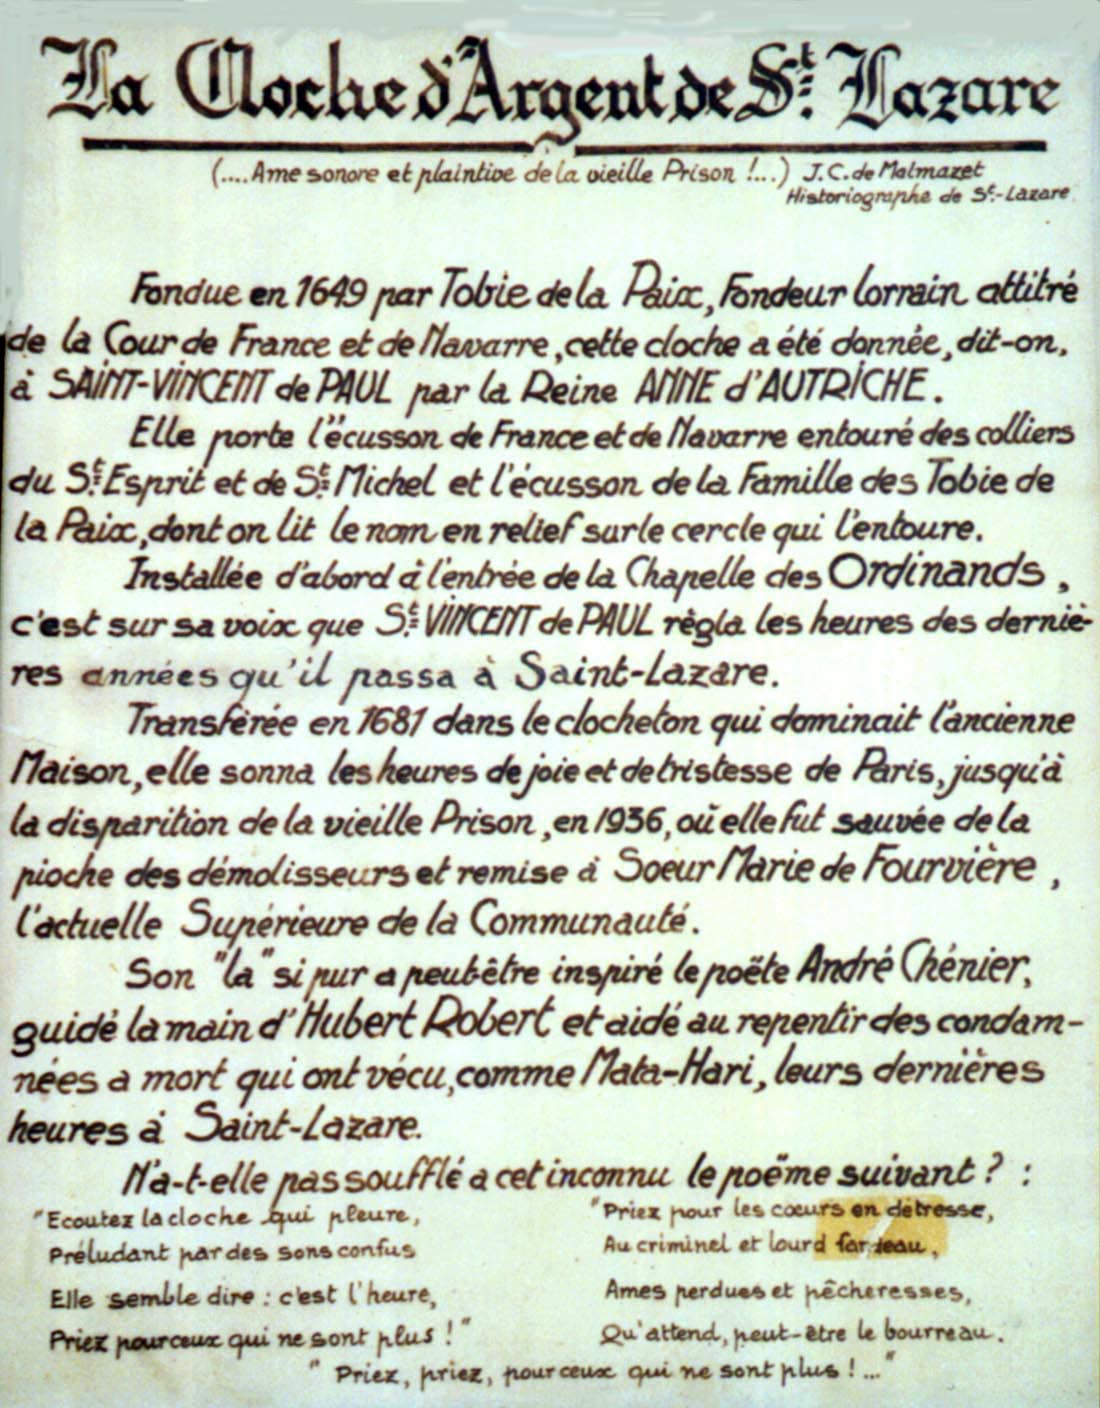 La Cloche d'Argent de St. Lazare
(....Ame sonore et plaintive de la vieille Prison !...) J.C. de Malmazet
Historiographe de St.-Lazare
Fondue en 1649 par Tobie de la Paix, Fondeur lorrain attitré
de la Cour de France et de Navarre, cette cloche a été donnée, dit-on,
à SAINT-VINCENT de PAUL par la Reine ANNE d'AUTRICHE.
Elle porte l'écusson de France et de Navarre entouré des colliers
du St. Esprit et de St. Michel et l'écusson de la Famille des Tobie de
la Paix, dont on lit le nom en relief sur le cercle qui l'entoure.
Installée d'abord à l'entrée de la Chapelle des Ordinands,
c'est sur sa voix que St. VINCENT de PAUL règla les heures des derniè-
res années qu'il passa à Saint-Lazare.
Transférée en 1681 dans le clocheton qui dominait l'ancienne
Maison, elle sonna les heures de joie et de tristesse de Paris, jusqu'à
la disparition de la vieille Prison, en 1936, où elle fut sauvée de la
pioche des démolisseurs et remise à Soeur Marie de Fourvière,
l'actuelle Supérieure de la Communauté.
Son "la" si pur a peut-être inspiré le poëte André Chénier,
guidé la main d'Hubert Robert et aidé au repentir des condam-
nées a mort qui ont vécu, comme Mata-Hari, leurs dernières
heures à Saint-Lazare.
N'a-t-elle pas soufflé a cet inconnu le poëme suivant ? :
"Ecoutez la cloche qui pleure,
Préludant par des sons confus
Elle semble dire : c'est l'heure,
Priez pour ceux qui ne sont plus !"
"Priez pour les cœurs en détresse,
Au criminel et lourd fardeau,
Ames perdues et pêcheresses,
Qu'attend, peut-être le bourreau.
"Priez, priez, pour ceux qui ne sont plus !..."